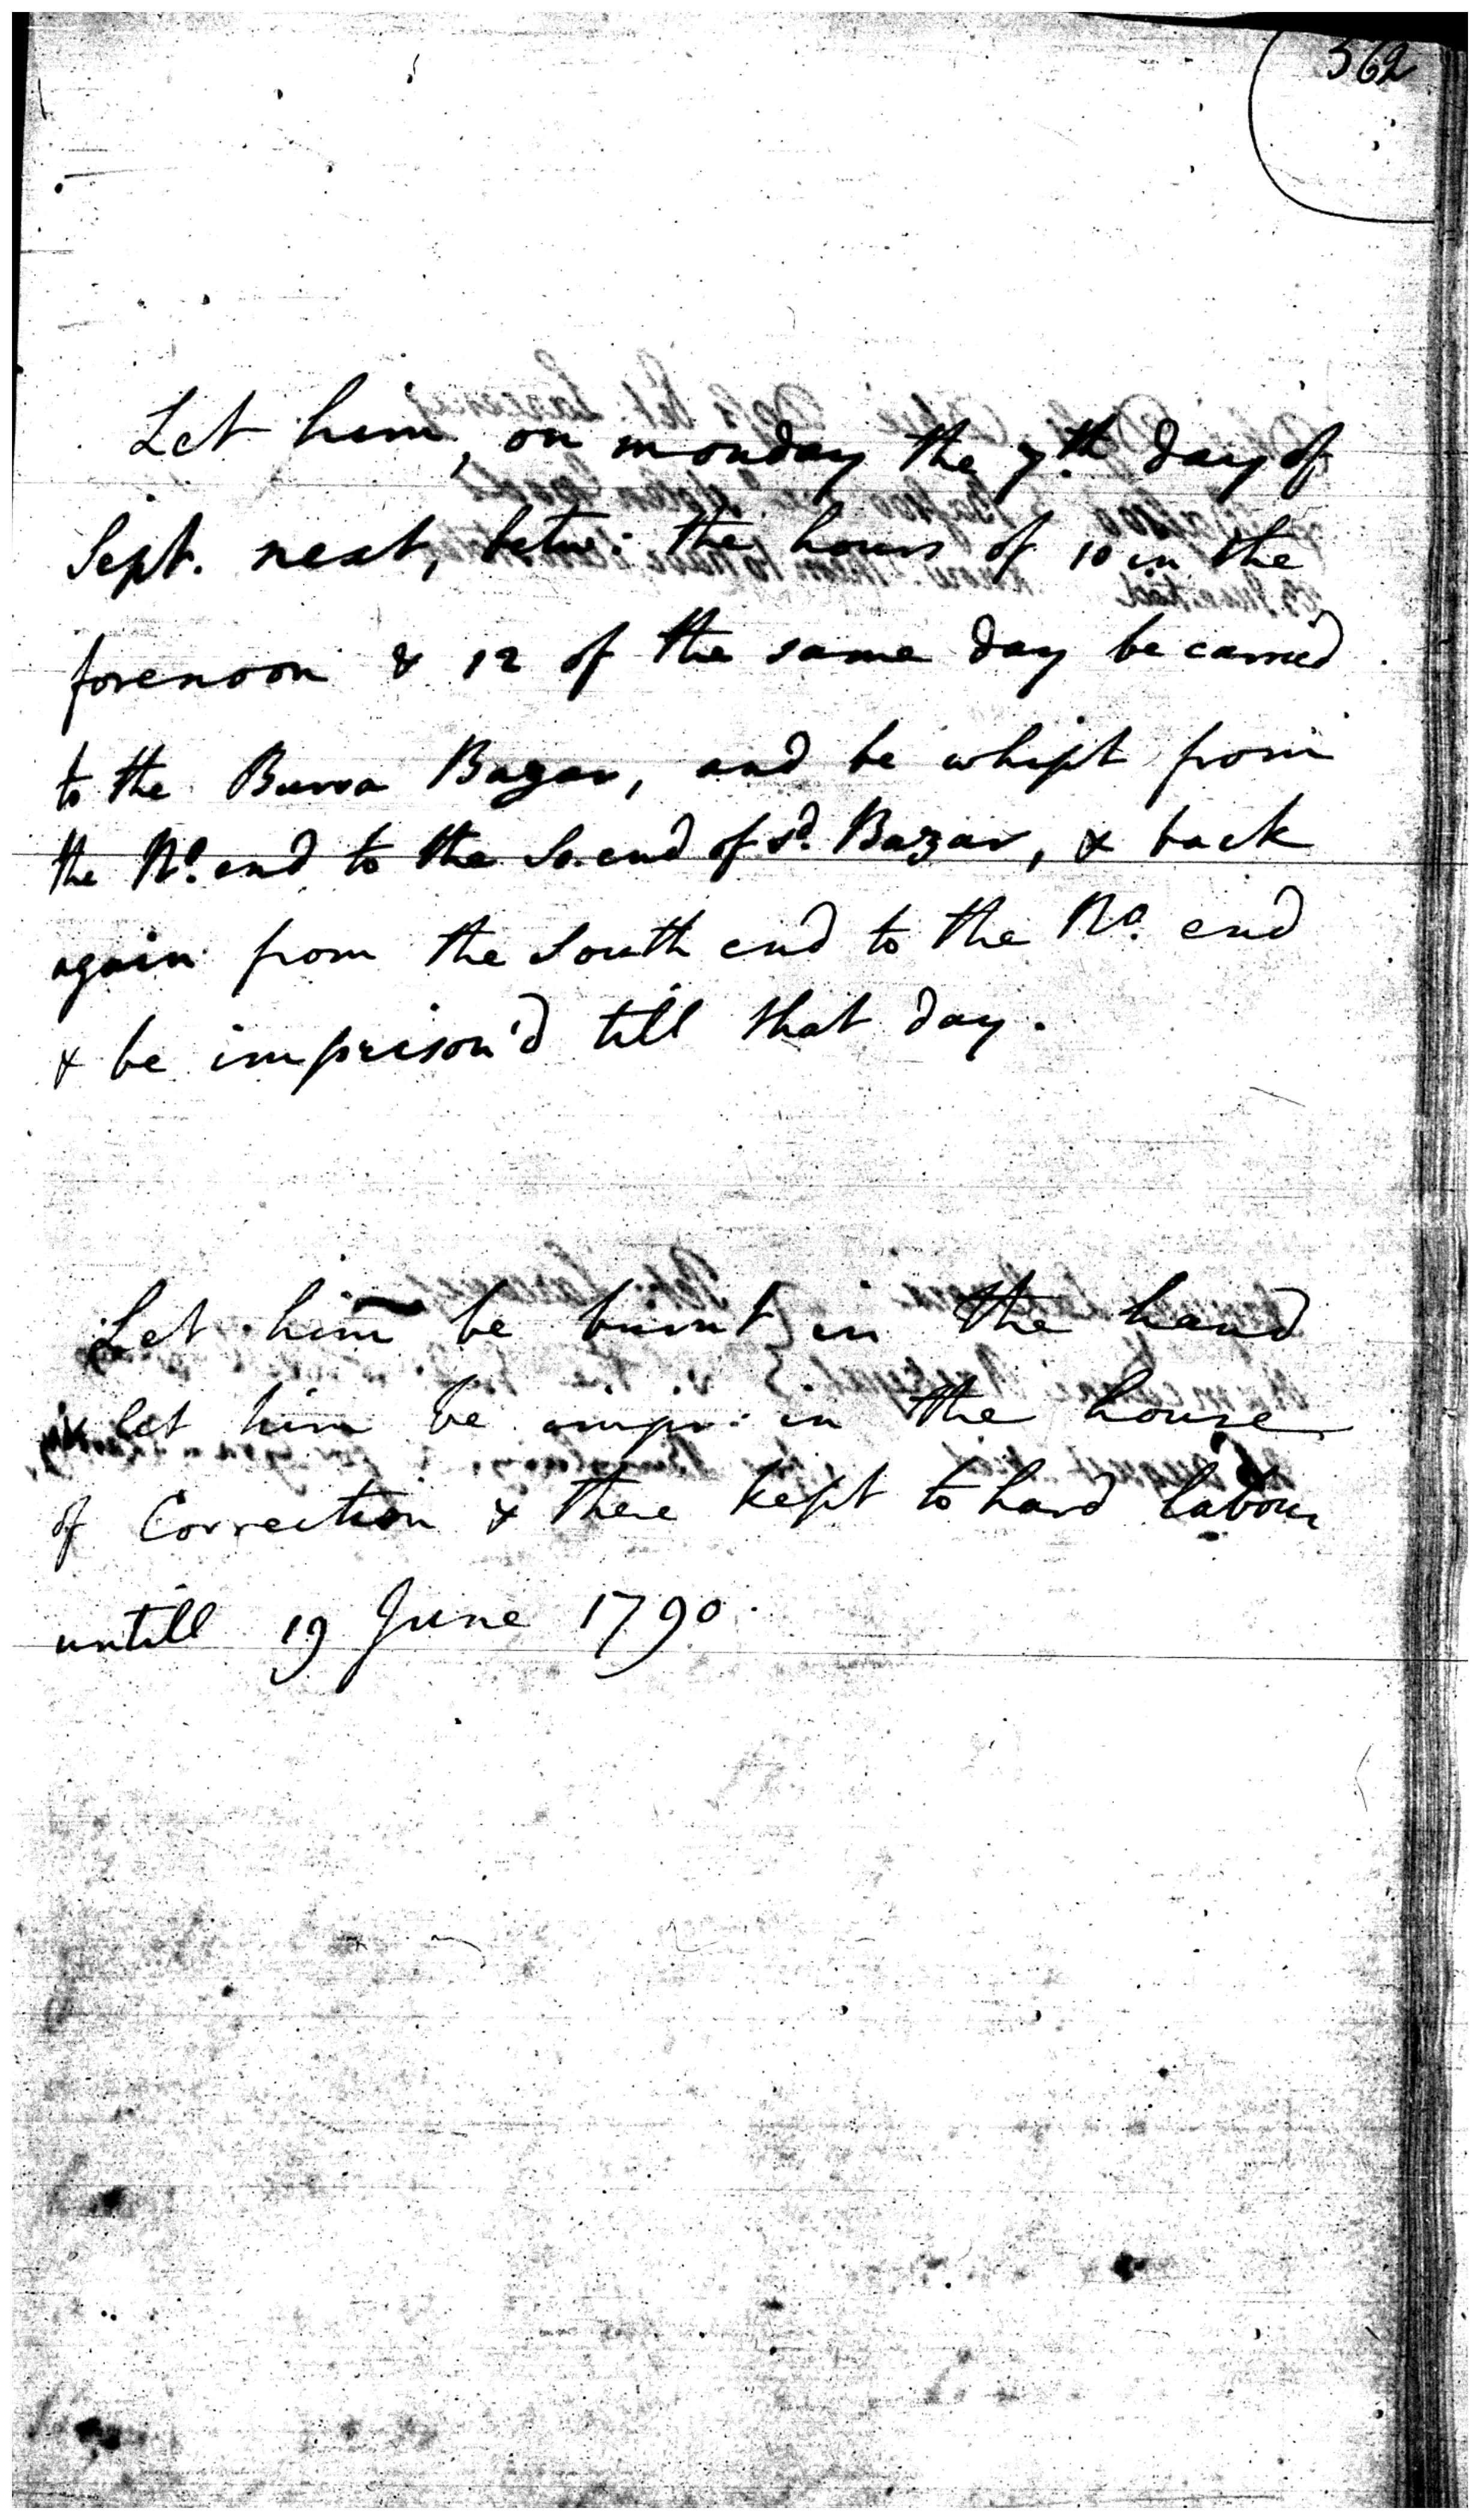 362
Let him, on monday the 7th. day of
Sept. next, betw: the hours of 10 in the
forenoon & 12 of the same day be carried
to the Burra Bazar, and be whipt from
the No. end to the So. end of sd. Bazar, & back
again from the South end to the No. end
& be imprison'd till that day.
Let him be burnt in the hand
& let him be impr: in the house
of Correction & there kept to hard labour
untill 19 June 1790.